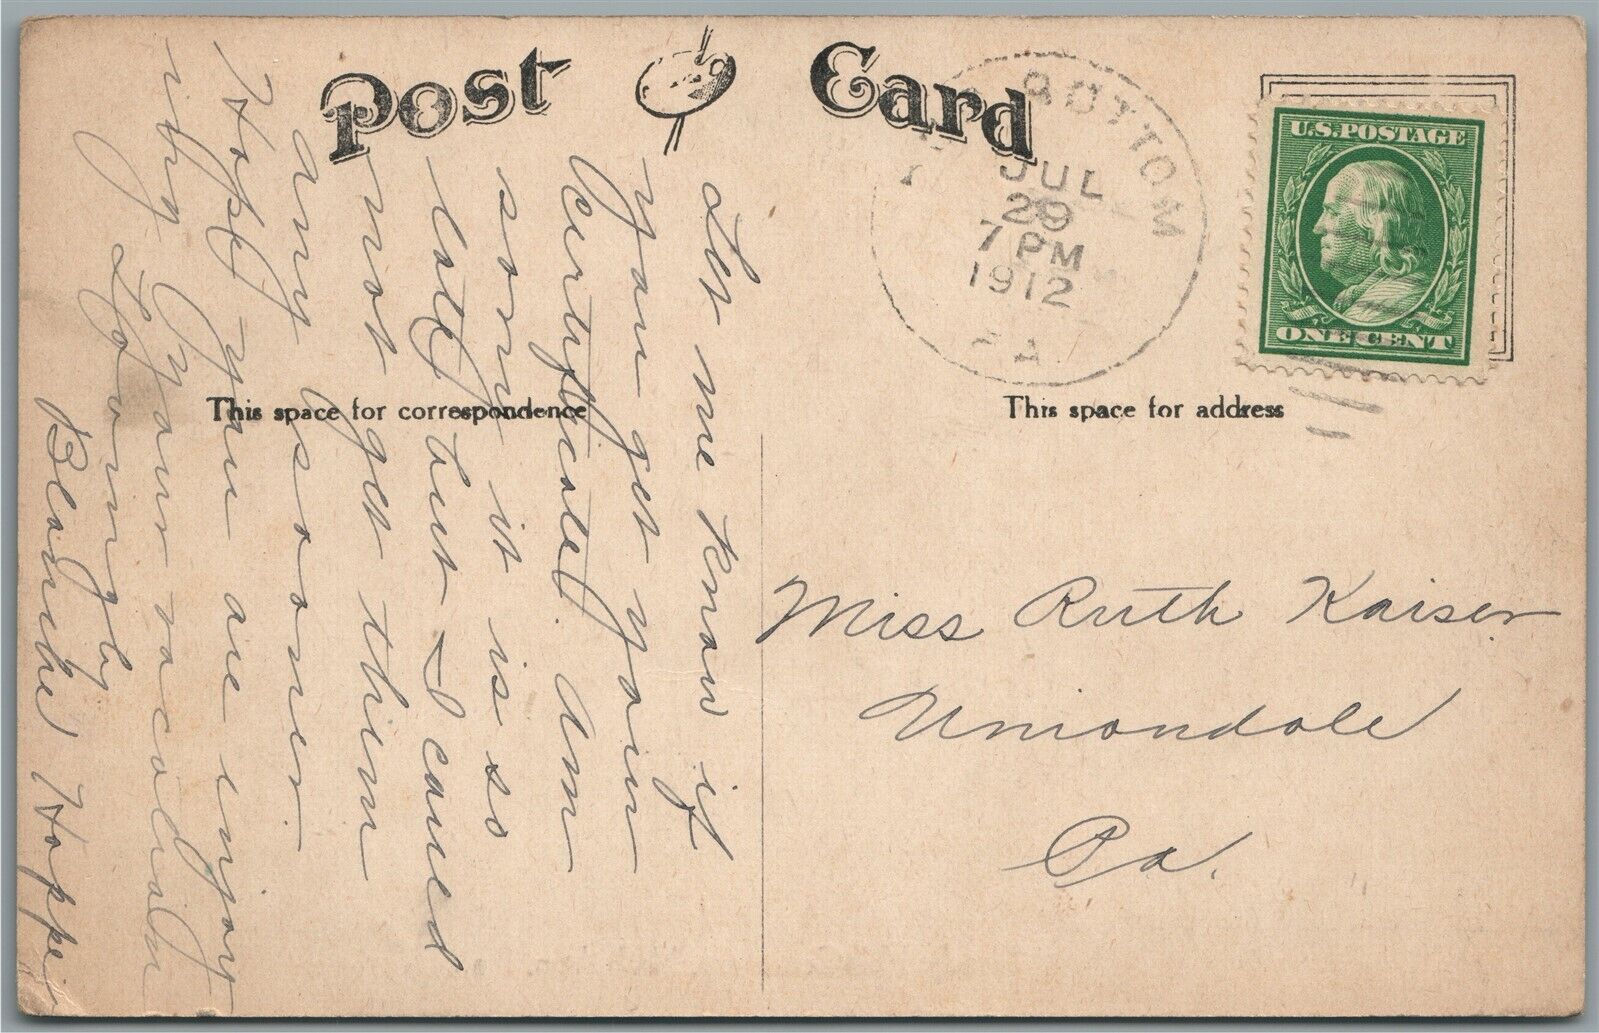 Post Card
BOTTOM
JUL
29
7 PM
1912
PA.
U.S. POSTAGE
ONE CENT
This space for correspondence
This space for address
Let me know if
you get your
Certificate. Am
sorry it is so
late but I could
not get them
any sooner.
Hope you are enjoy
ing your vacation
Lovingly
Blanche Hoppe
Miss Ruth Kaiser
Uniondale
Pa.